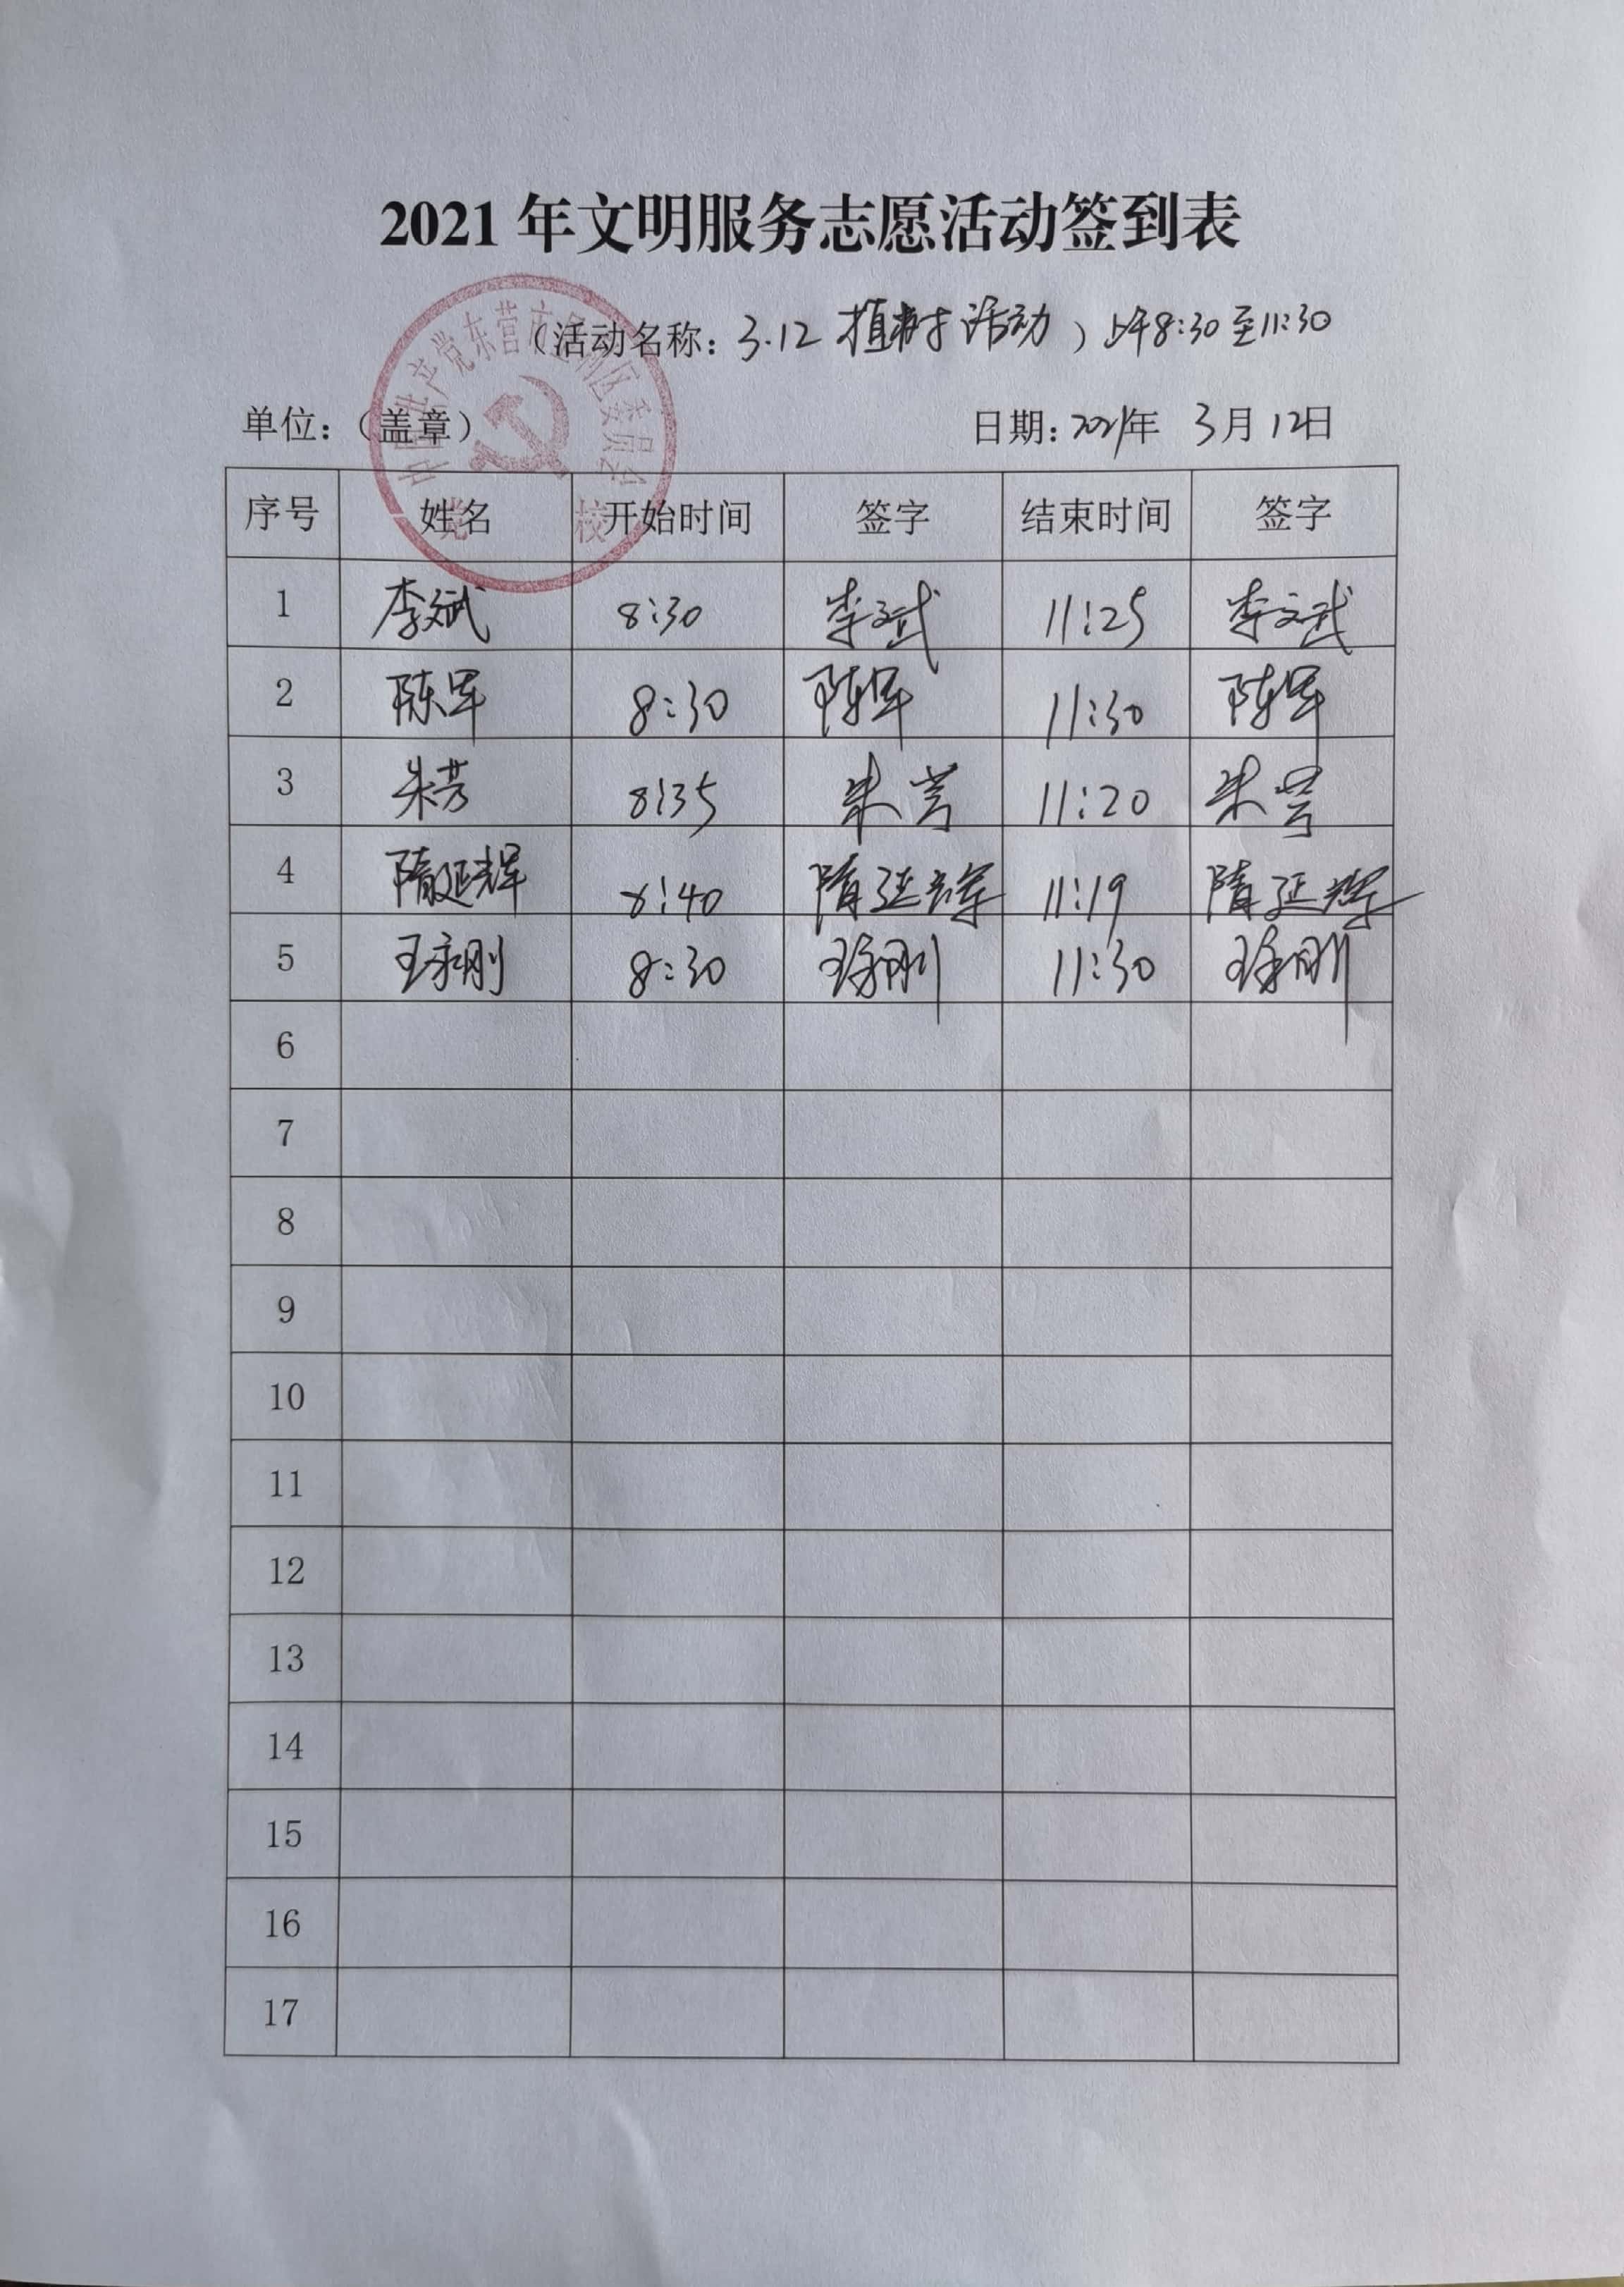 2021 年文明服务志愿活动签到表
（活动名称：3.12 植树活动）上午8:30至11:30
单位：（盖章） 日期：2021年 3月12日
中国共产党东营市垦利区委员会
党校
序号 姓名 开始时间 签字 结束时间 签字
1 李斌 8:30 李斌 11:25 李斌
2 陈军 8:30 陈军 11:30 陈军
3 朱芳 8:35 朱芳 11:20 朱芳
4 隋延辉 8:40 隋延辉 11:19 隋延辉
5 王永刚 8:30 王永刚 11:30 王永刚
6
7
8
9
10
11
12
13
14
15
16
17